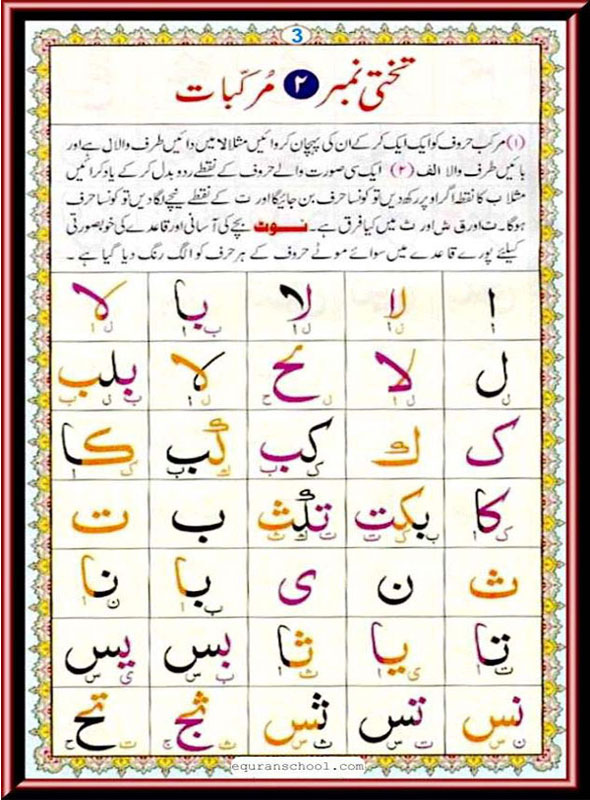 3
تختی نمبر ۲ مرکّبات
(۱) مرکب حروف کو ایک ایک کر کے ان کی پہچان کروائیں مثلا لا میں دائیں طرف والا ل ہے اور
بائیں طرف والا الف (۲) ایک سی صورت والے حروف کے نقطے ردوبدل کر کے یاد کرائیں
مثلا ب کا نقطہ اگر اوپر رکھ دیں تو کونسا حرف بن جائیگا اور ت کے نقطے نیچے لگا دیں تو کونسا حرف
ہوگا۔ ت اور ق ش اور ث میں کیا فرق ہے۔ نوٹ بچے کی آسانی اور قاعدے کی خوبصورتی
کیلئے پورے قاعدے میں سوائے موٹے حروف کے ہر حرف کو الگ رنگ دیا گیا ہے۔
ا لا لا با لا
ا ل ا ل ا ب ا ل ا
ل لا لح لا بلب
ل ل ا ل ح ل ا ب ل ب
ک ك کب كب کا
ک ب ك ب ک ا
کا بکت تكث ب ت
ک ا ب ک ت ت ك ث
ث ن ی با نا
ب ا ن ا
تا یا ثا بس یس
ت ا ی ا ث ا ب س ی س
نس تس ثس ثج تح
ن س ت س ث س ث ج ت ح
equranschool.com